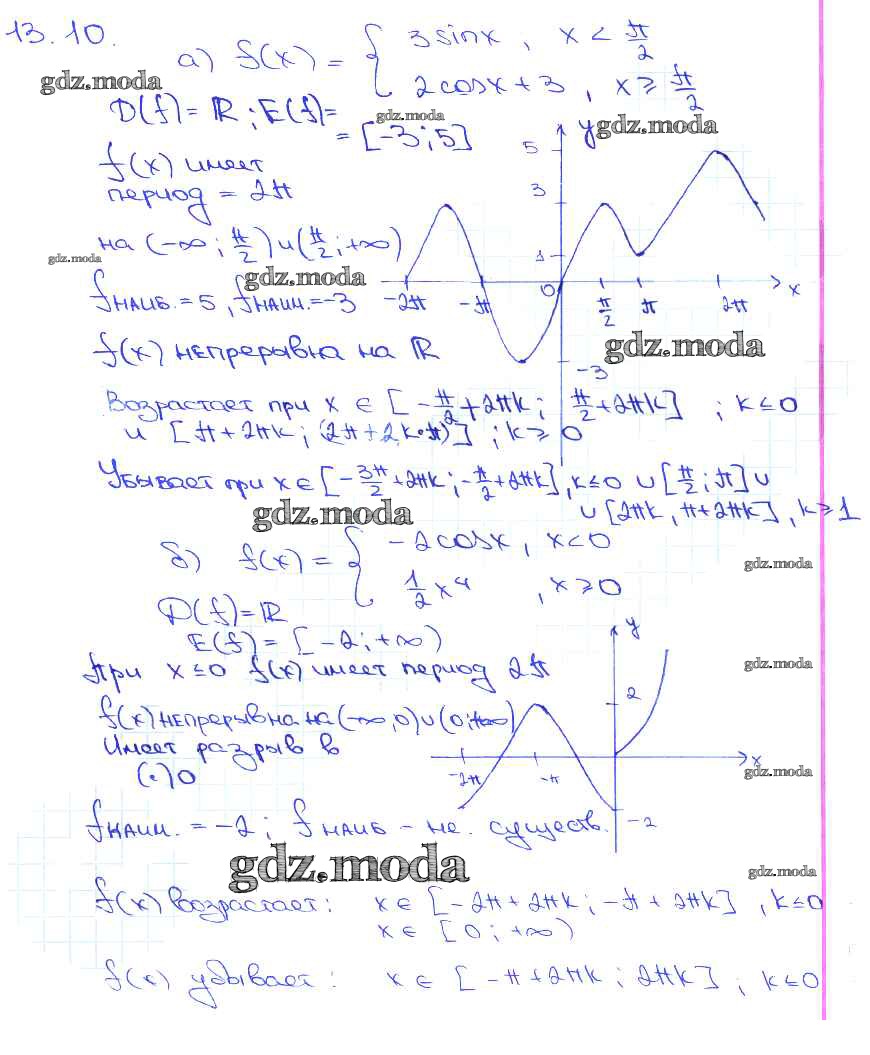 13.10.
а) f(x) = { 3sinx, x < π/2
2cosx + 3, x ≥ π/2
gdz.moda
D(f) = ℝ; E(f) =
= [-3; 5]
gdz.moda
y gdz.moda
f(x) имеет
период = 2π
5
3
1
на (-∞; π/2) и (π/2; +∞)
gdz.moda
gdz.moda
fнаиб. = 5, fнаим. = -3
-2π -π 0 π/2 π 2π x
f(x) непрерывна на ℝ
gdz.moda
-3
Возрастает при x ∈ [-π/2 + 2πk; π/2 + 2πk]; k ≤ 0
и [π + 2πk; (2π + 2k·π)]; k ≥ 0
Убывает при x ∈ [-3π/2 + 2πk; -π/2 + 2πk], k ≤ 0 ∪ [π/2; π] ∪
∪ [2πk, π + 2πk], k ≥ 1
gdz.moda
б) f(x) = { -2cosx, x < 0
1/2 x⁴, x ≥ 0
gdz.moda
D(f) = ℝ
E(f) = [-2; +∞)
y
При x ≤ 0 f(x) имеет период 2π
gdz.moda
2
f(x) непрерывна на (-∞, 0) ∪ (0; +∞)
Имеет разрыв в
(·) 0
-2π -π x
gdz.moda
-2
fнаим. = -2; fнаиб - не. существ.
gdz.moda
gdz.moda
f(x) возрастает: x ∈ [-2π + 2πk; -π + 2πk], k ≤ 0
x ∈ [0; +∞)
f(x) убывает: x ∈ [-π + 2πk; 2πk]; k ≤ 0